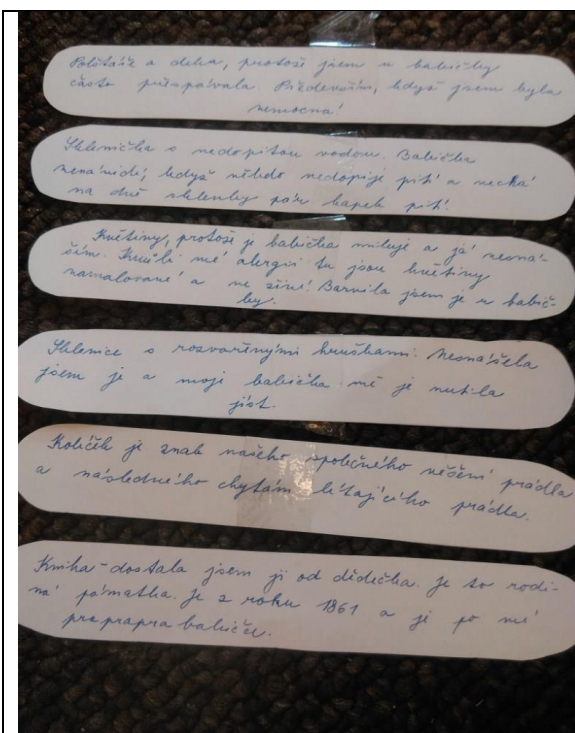 Polštář a deka, protože jsem u babičky
často přespávala. Především, když jsem byla
nemocná!
Sklenička s nedopitou vodou. Babička
nenávidí, když někdo nedopije pití a nechá
na dně sklenky pár kapek pití!
Květiny, protože je babička miluje a já nesná-
ším. Kvůli mé alergii tu jsou květiny
namalované a ne živé! Barvila jsem je u babič-
ky.
Sklenice s rozvařenými hruškami. Nesnášela
jsem je a moje babička mě je nutila
jíst.
Kolíček je znak našeho společného věšení prádla
a následného chytání létajícího prádla.
Kniha - dostala jsem ji od dědečka. Je to rodi-
ná památka. Je z roku 1861 a je po mé
praprapra babičce.